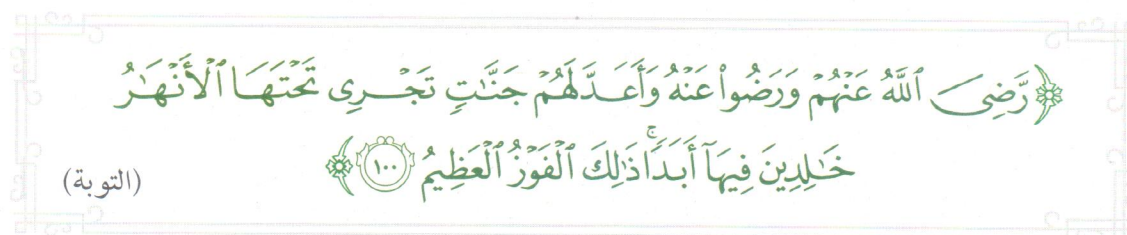 ﴿رَّضِيَ ٱللَّهُ عَنۡهُمۡ وَرَضُواْ عَنۡهُ وَأَعَدَّ لَهُمۡ جَنَّٰتٖ تَجۡرِي تَحۡتَهَا ٱلۡأَنۡهَٰرُ
خَٰلِدِينَ فِيهَآ أَبَدٗاۚ ذَٰلِكَ ٱلۡفَوۡزُ ٱلۡعَظِيمُ ١٠٠﴾ (التوبة)